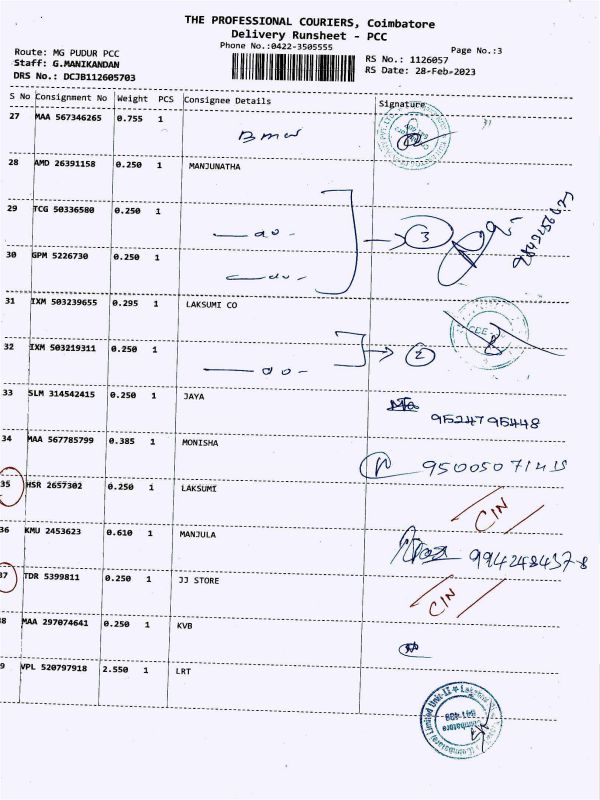 THE PROFESSIONAL COURIERS, Coimbatore
Delivery Runsheet - PCC
Phone No.:0422-3505555
Page No.:3
Route: MG PUDUR PCC
Staff: G.MANIKANDAN
DRS No.: DCJB112605703
RS No.: 1126057
RS Date: 28-Feb-2023
S No Consignment No Weight PCS Consignee Details Signature
27 MAA 567346265 0.755 1 Bmw
28 AMD 26391158 0.250 1 MANJUNATHA
29 TCG 50336580 0.250 1 — do - 3
30 GPM 5226730 0.250 1 — do -
31 IXM 503239655 0.295 1 LAKSUMI CO
32 IXM 503219311 0.250 1 — do - 2
33 SLM 314542415 0.250 1 JAYA 9524795448
34 MAA 567785799 0.385 1 MONISHA
35 HSR 2657302 0.250 1 LAKSUMI CIN
36 KMU 2453623 0.610 1 MANJULA 9942484378
37 TDR 5399811 0.250 1 JJ STORE CIN
8 MAA 297074641 0.250 1 KVB
9 VPL 520797918 2.550 1 LRT